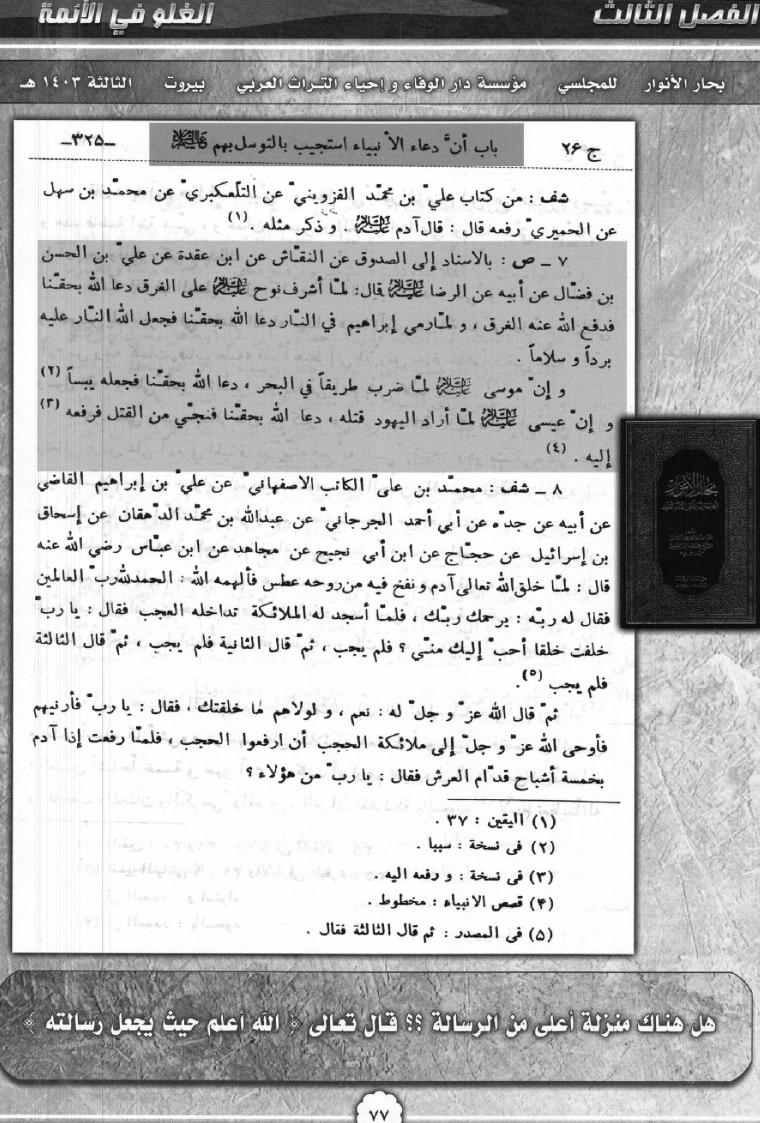 الفصل الثالث
الغلو في الأئمة
بحار الأنوار للمجلسي مؤسسة دار الوفاء و إحياء التراث العربي بيروت الثالثة ١٤٠٣ هـ
ج ٢٦ باب أنّ دعاء الأنبياء استجيب بالتوسل بهم عليهم السلام ـ٣٢٥ـ
شف : من كتاب عليّ بن محمّد القزوينيّ عن التلّعكبريّ عن محمّد بن سهل
عن الحميريّ رفعه قال : قال آدم عليه السلام . و ذكر مثله . (١)
٧ ـ ص : بالاسناد إلى الصدوق عن النقّاش عن ابن عقدة عن عليّ بن الحسن
بن فضّال عن أبيه عن الرضا عليه السلام قال: لمّا أشرف نوح عليه السلام على الغرق دعا الله بحقّنا
فدفع الله عنه الغرق ، و لمّا رمي إبراهيم في النّار دعا الله بحقّنا فجعل الله النّار عليه
برداً و سلاماً .
و إنّ موسى عليه السلام لمّا ضرب طريقاً في البحر ، دعا الله بحقّنا فجعله يبساً (٢)
و إنّ عيسى عليه السلام لمّا أراد اليهود قتله ، دعا الله بحقّنا فنجّي من القتل فرفعه (٣)
إليه . (٤)
٨ ـ شف : محمّد بن عليّ الكاتب الاصفهانيّ عن عليّ بن إبراهيم القاضي
عن أبيه عن جدّه عن أبي أحمد الجرجانيّ عن عبدالله بن محمّد الدّهقان عن إسحاق
بن إسرائيل عن حجّاج عن ابن أبي نجيح عن مجاهد عن ابن عبّاس رضي الله عنه
قال : لمّا خلق الله تعالى آدم و نفخ فيه من روحه عطس فألهمه الله : الحمدلله ربّ العالمين
فقال له ربّه : يرحمك ربّك ، فلمّا أسجد له الملائكة تداخله العجب فقال : يا ربّ
خلقت خلقا أحبّ إليك منّي ؟ فلم يجب ، ثمّ قال الثانية فلم يجب ، ثمّ قال الثالثة
فلم يجب (٥) .
ثمّ قال الله عزّ و جلّ له : نعم ، و لولاهم ما خلقتك ، فقال : يا ربّ فأرنيهم
فأوحى الله عزّ و جلّ إلى ملائكة الحجب أن ارفعوا الحجب ، فلمّا رفعت إذا آدم
بخمسة أشباح قدّام العرش فقال : يا ربّ من هؤلاء ؟
(١) اليقين : ٣٧ .
(٢) فى نسخة : سيبا .
(٣) فى نسخة : و رفعه اليه .
(٤) قصص الانبياء : مخطوط .
(٥) فى المصدر : ثم قال الثالثة فقال .
هل هناك منزلة أعلى من الرسالة ؟؟ قال تعالى ﴿ الله أعلم حيث يجعل رسالته ﴾
٧٧